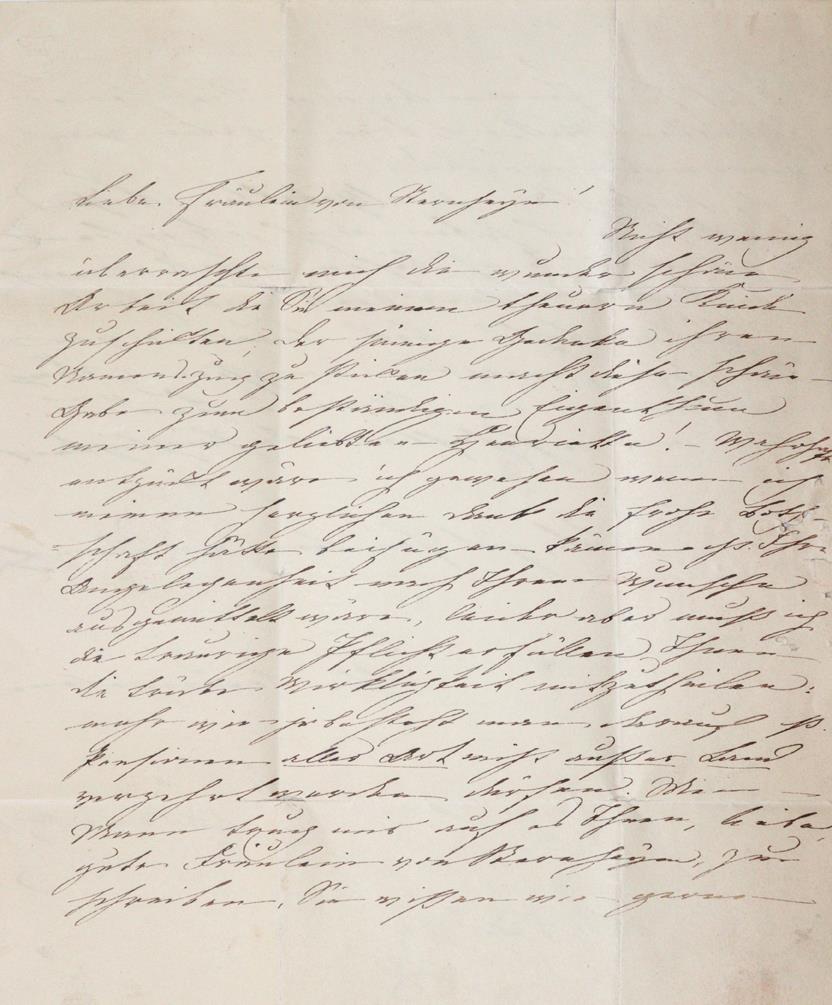 Liebe Fräulein von Sternheyn!
Nicht wenig
überraschte mich die wunder schöne
Arbeit die Sie meinem theuern Kinde
zuschikten, der sinnige Gedanke ihren
Namenszug zu stiken macht diese schöne
Gabe zum beständigen Eigenthum
meiner geliebten Henriette! – Wahrhaft
entzückt wäre ich gewesen wenn ich
meinem herzlichen Dank die frohe Both-
schaft hätte beifügen können daß Ihre
Angelegenheit nach Ihrem Wunsche
ausgemittelt wäre, leider aber muß ich
die traurige Pflicht erfüllen Ihnen
die trübe Wirklichkeit mitzutheilen:
mehr wie je besteht man darauf daß
Pensionen aller Art nicht außer Land
verzehrt werden dürfen. Mein
Mann trug mir auf es Ihnen, liebe,
gute Fräulein von Sternheyn, zu
schreiben, Sie wissen wie gerne